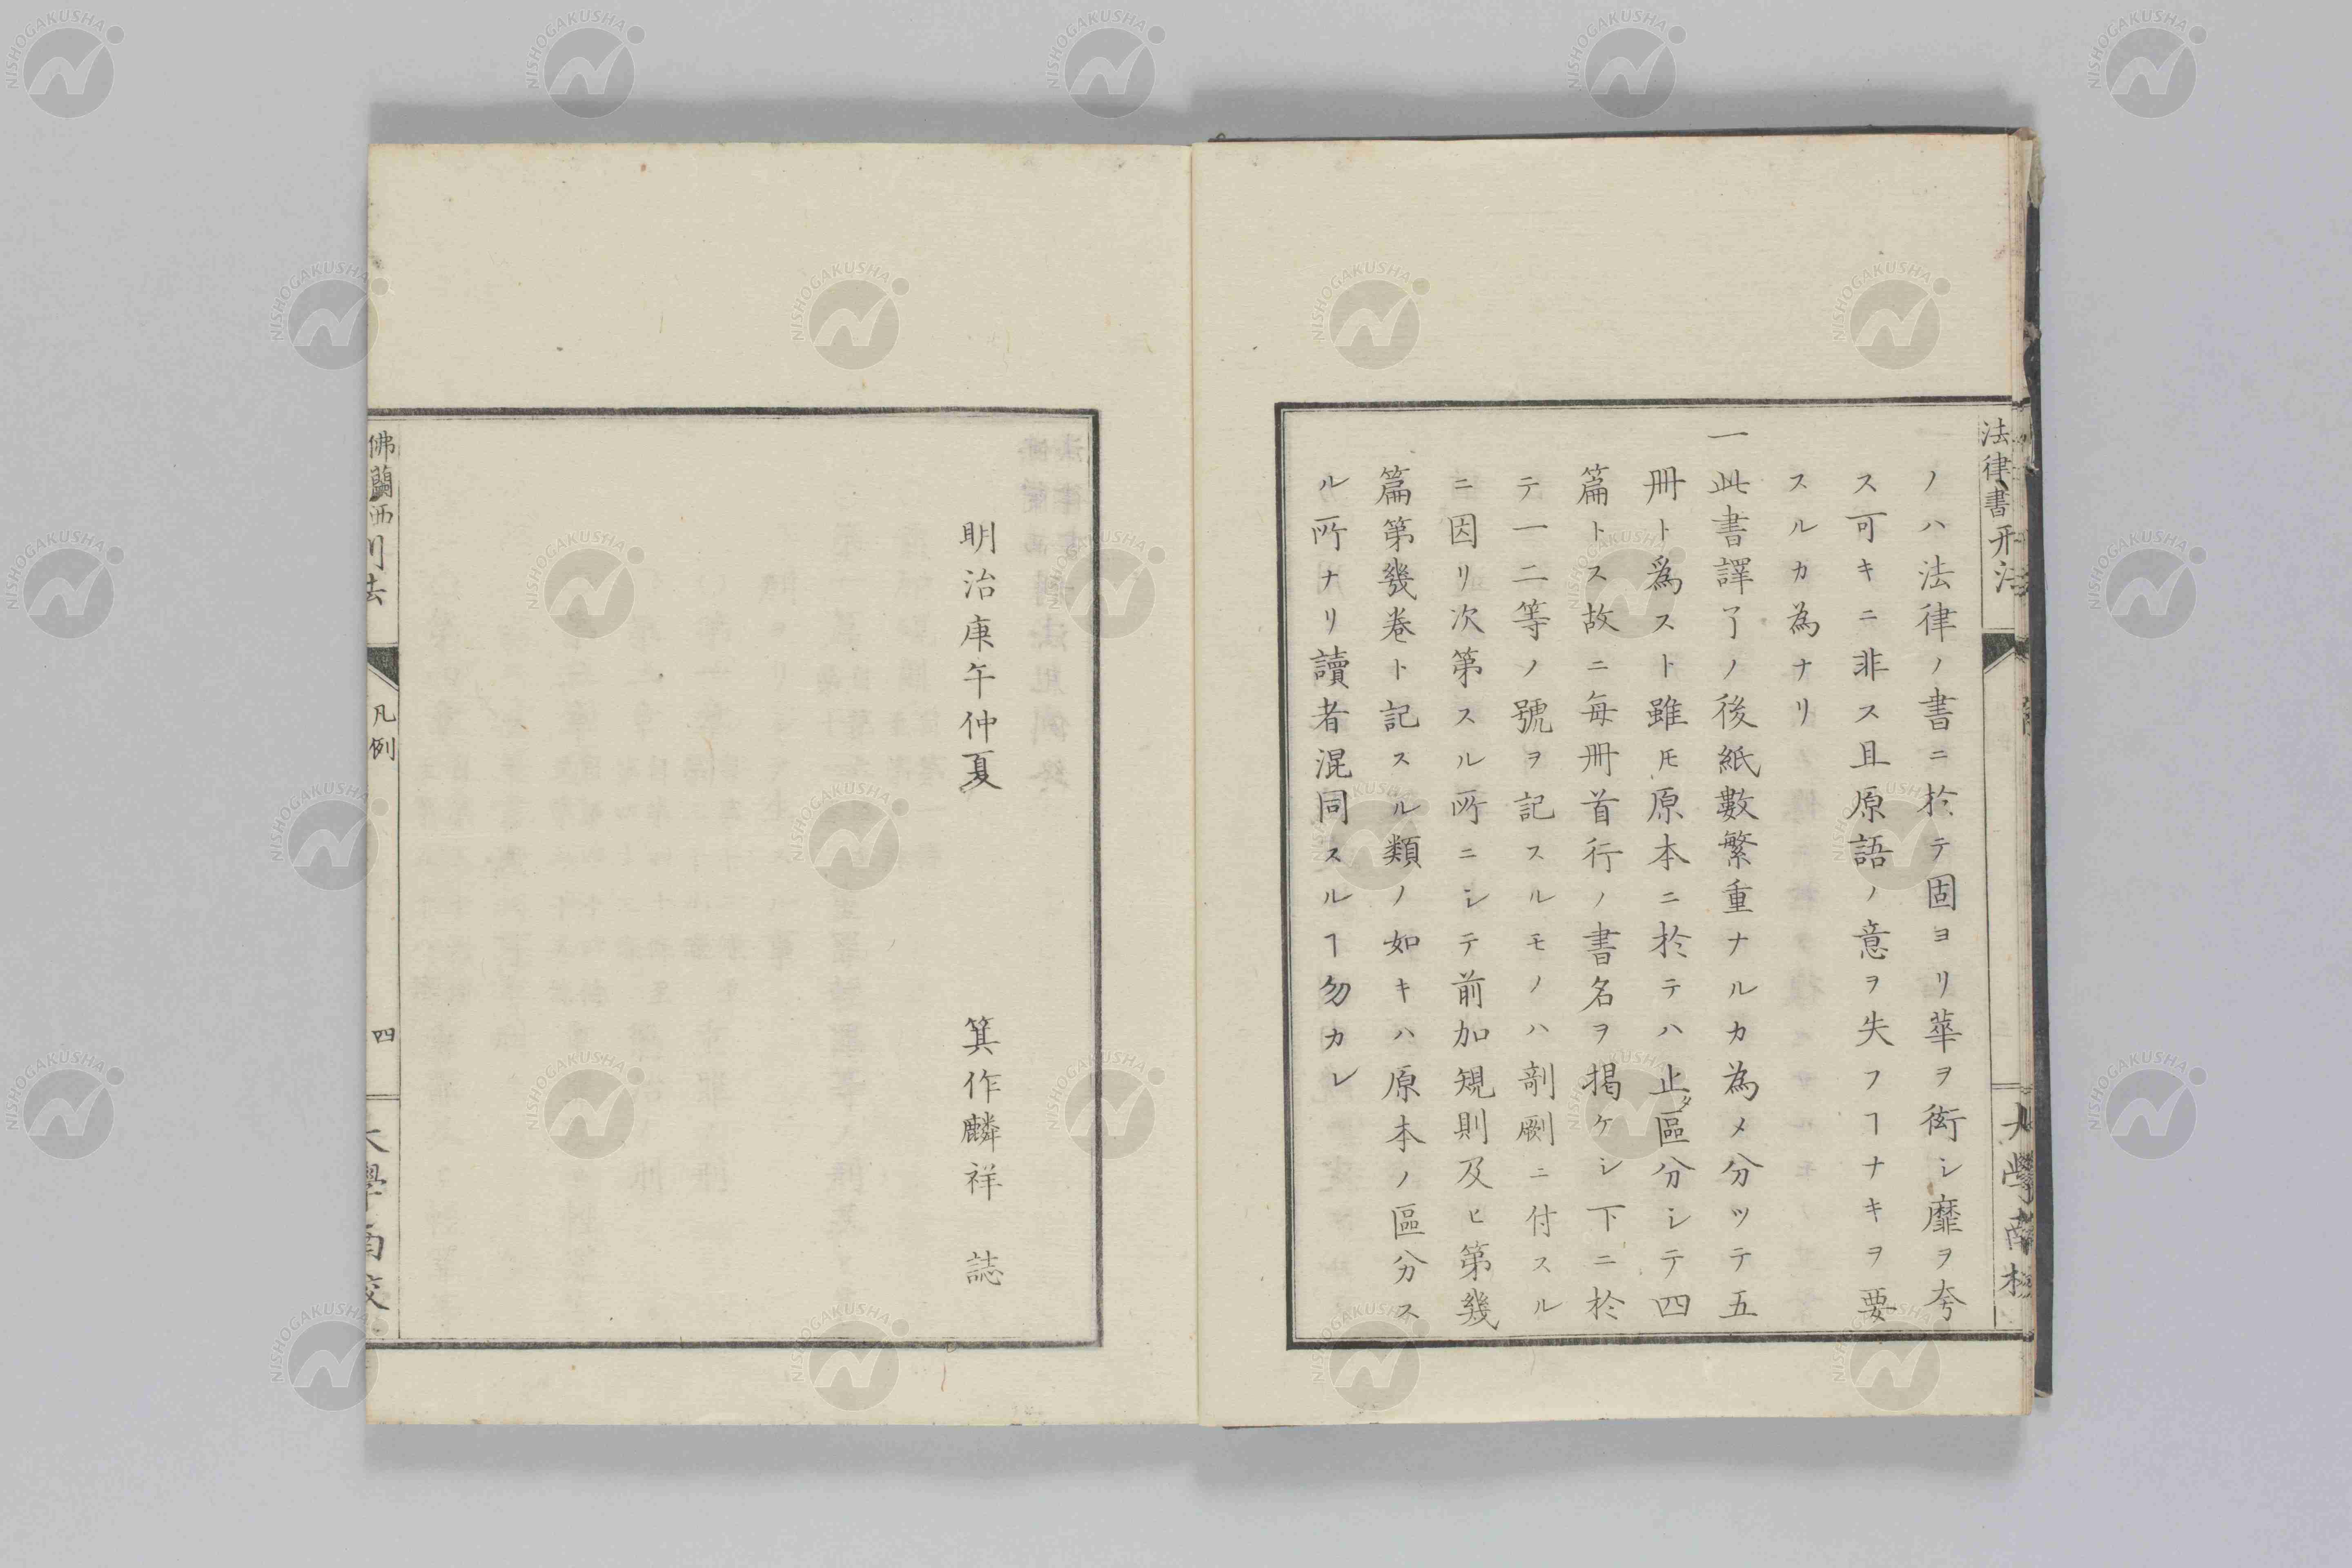 法律書刑法
大學南校
ノハ法律ノ書ニ於テ固ヨリ華ヲ衒シ靡ヲ夸
ス可キニ非ス且原語ノ意ヲ失フヿナキヲ要
スルカ為ナリ
一此書譯了ノ後紙數繁重ナルカ為メ分ツテ五
冊ト爲スト雖𪜈原本ニ於テハ止タ區分シテ四
篇トス故ニ毎冊首行ノ書名ヲ掲ケシ下ニ於
テ一二等ノ號ヲ記スルモノハ剞劂ニ付スル
ニ因リ次第スル所ニシテ前加規則及ヒ第幾
篇第幾巻ト記スル類ノ如キハ原本ノ區分ス
ル所ナリ讀者混同スルヿ勿カレ
明治庚午仲夏 箕作麟祥 誌
佛蘭西刑法
凡例
四
大學南校
NISHOGAKUSHA